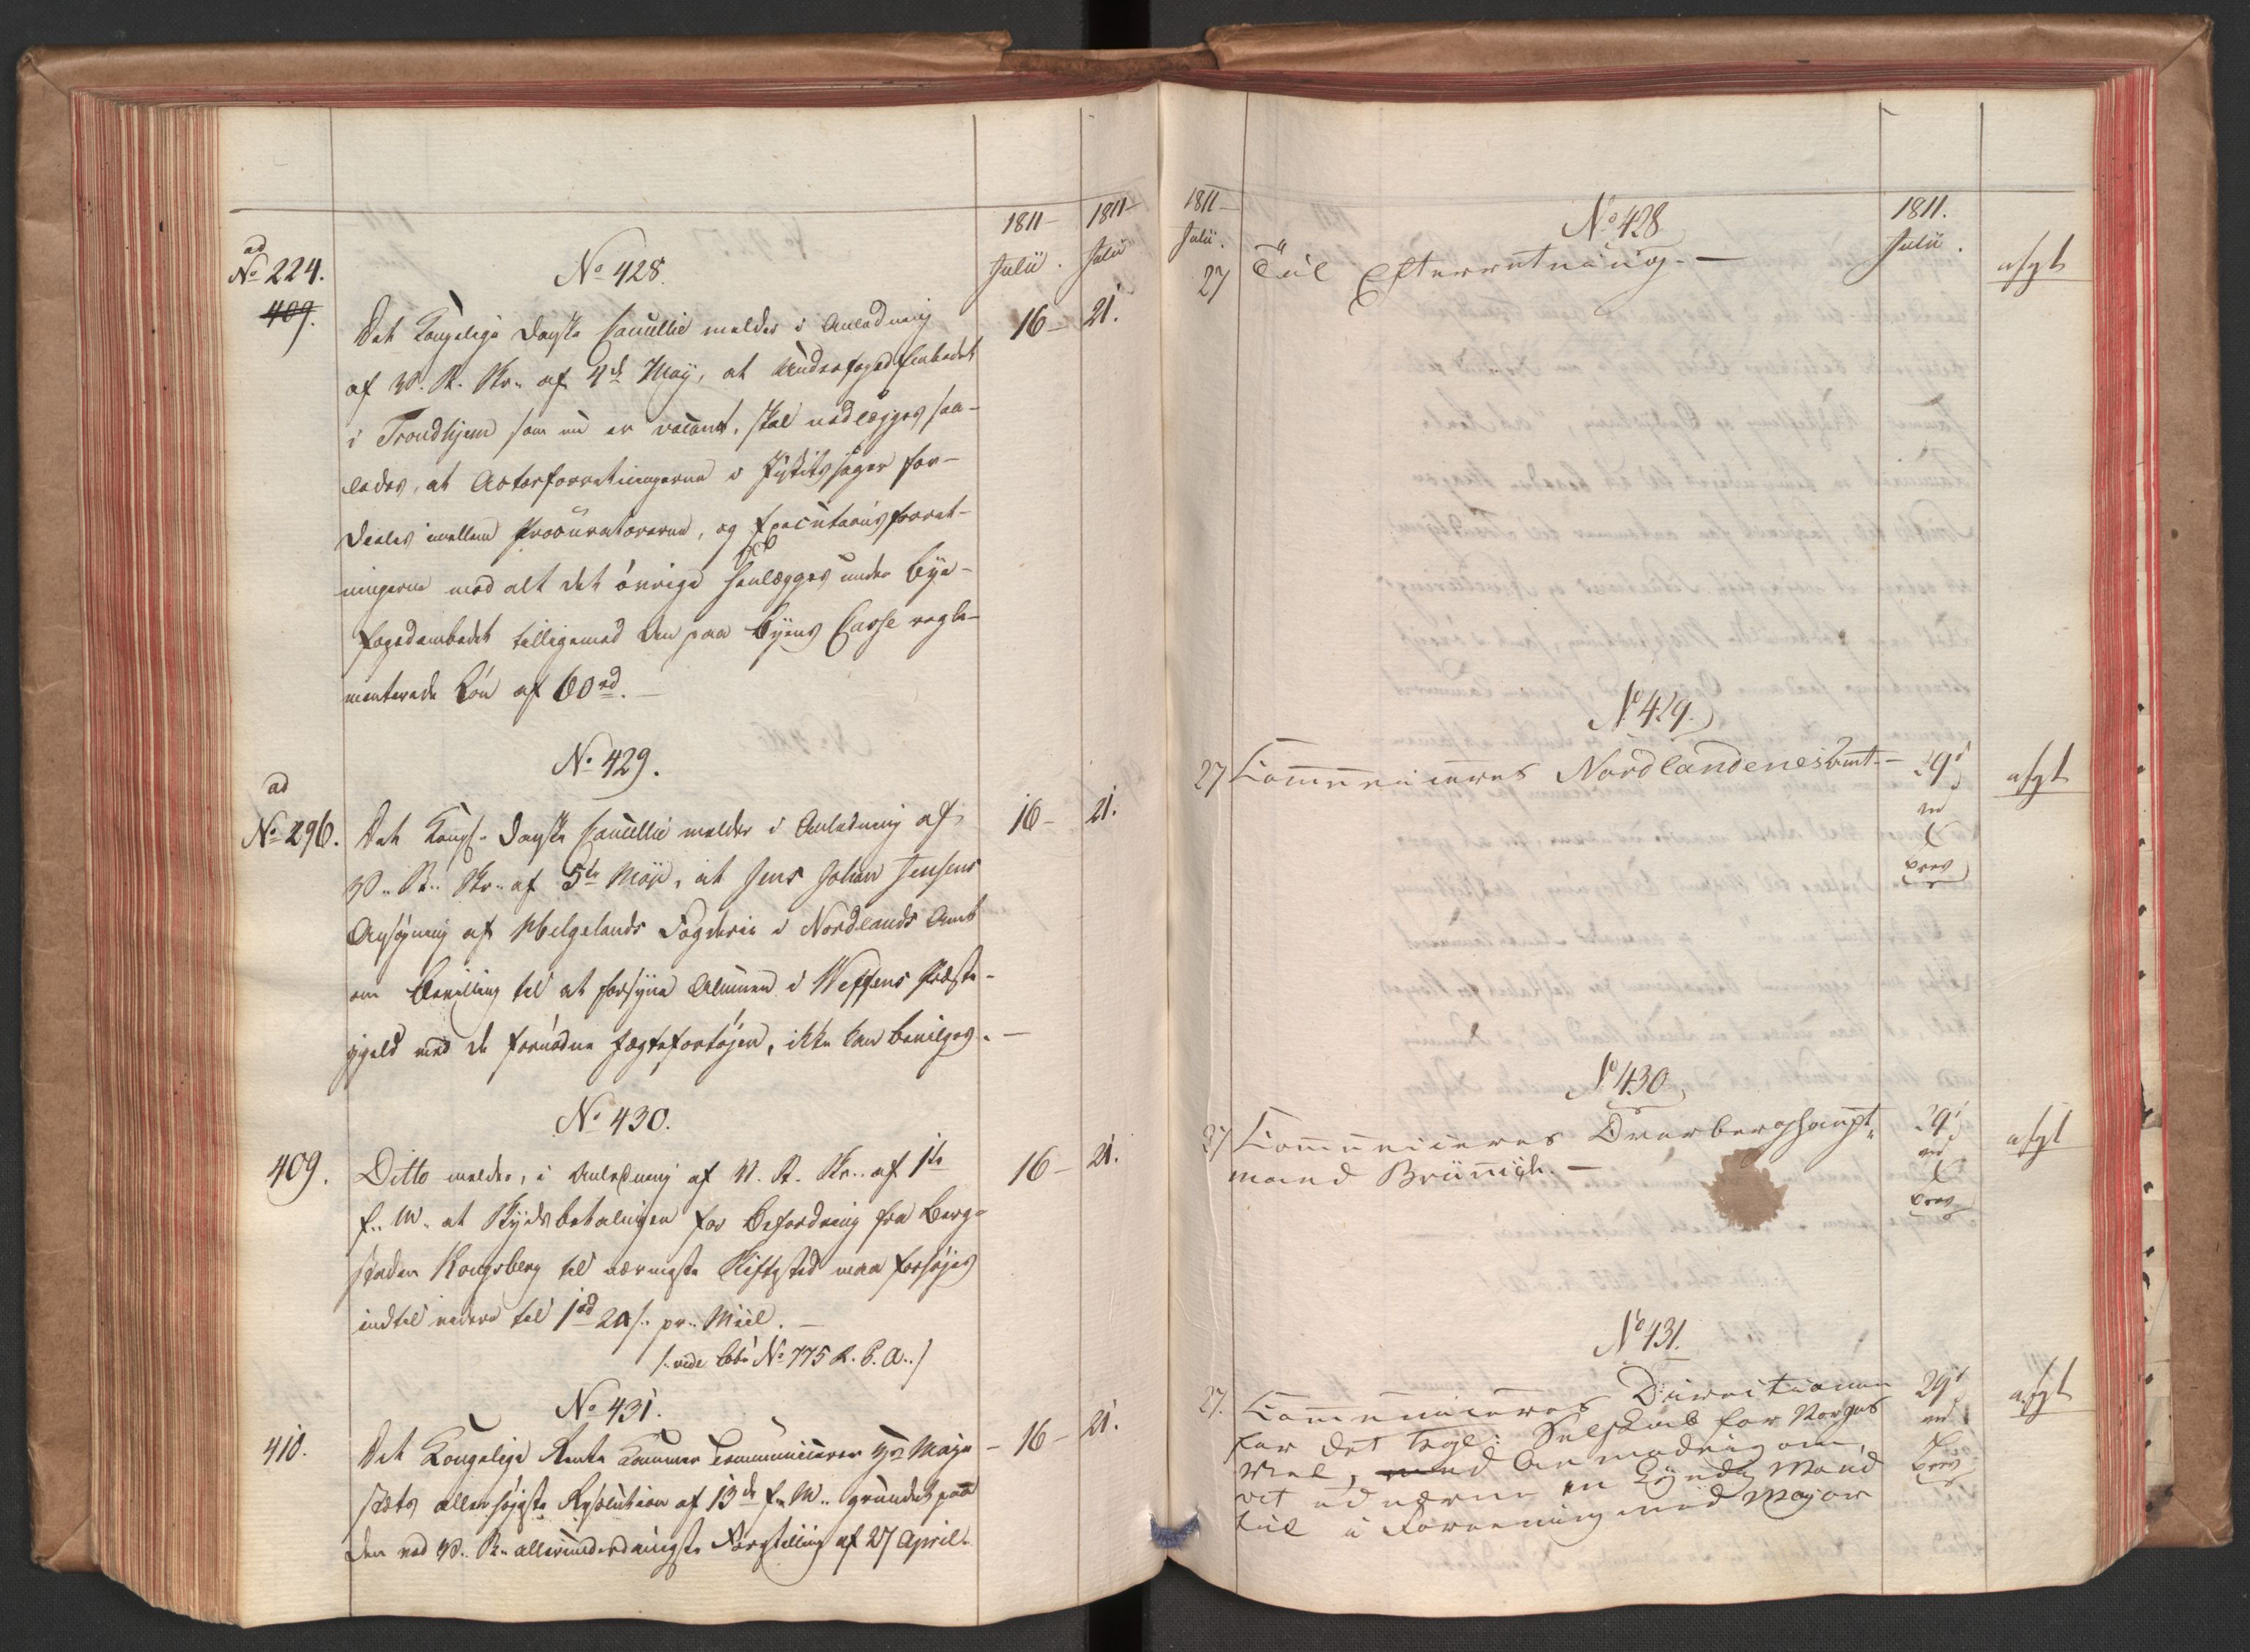 1811 –
1811 –
Julii.
Julii
ad
No 224.
409.
No 428.
Det Kongelige Danske Cancellie melder i Anledning
af V. R. Skr. af 4de May, at Underfoged Embedet
i Trondhjem som nu er vacant, skal nedlægges saa-
ledes, at Actorforretningerne i Justitssager for-
deeles imellem Procuratorerne, og forret-
ningerne med alt det övrige henlægges under Bye-
fogedembedet tilligemed den paa Byens Casse regle-
menterede Lön af 60 rd. –
16 –
21.
No 429.
ad
No 296.
Det Kongl. Danske Cancellie melder i Anledning af
V. R. Skr. af 5te Maji, at Jens Johan Jensens
Ansøgning af Helgelands Fogderie i Nordlands Amt
om Bevilling til at forsyne Almuen i Wefsens Præste-
gjeld med de fornødne , ikke kan bevilges. –
16 –
21.
No 430.
409.
Ditto melder, i Anledning af V. R. Skr. af 1te
f. M. at Skydsbetalingen for Befordring fra Berg-
staden Kongsberg til nærmeste Skiftested maa forhøjes
indtil videre til 1 rd 2a s. pr. Miil. –
/: vide No 775 R. B. A. :/
16 –
21.
No 431.
410.
Det Kongelige Rente Kammer communicerer Hs Maje-
stæts allerhøjeste Resolution af 13de f. M. grundet paa
den ved V. R. allerunderdanigste Forestilling af 27 April
– 16 –
21.
1811 –
Julii.
1811.
Julii.
No 428
27
Til Efterretning. –
afgt
No 429.
27
Communiceres Nordlandenes Amt –
29
afgt
No 430
27
Communiceres Overberghaupt-
mand Brünich. –
29
afgt
No 431.
27.
Communiceres Directionen
for det kgl: Selskab for Norges
Vel, med Anmodning om,
at udnævne en kyndig Mand
til i Forening med Major
29
afgt